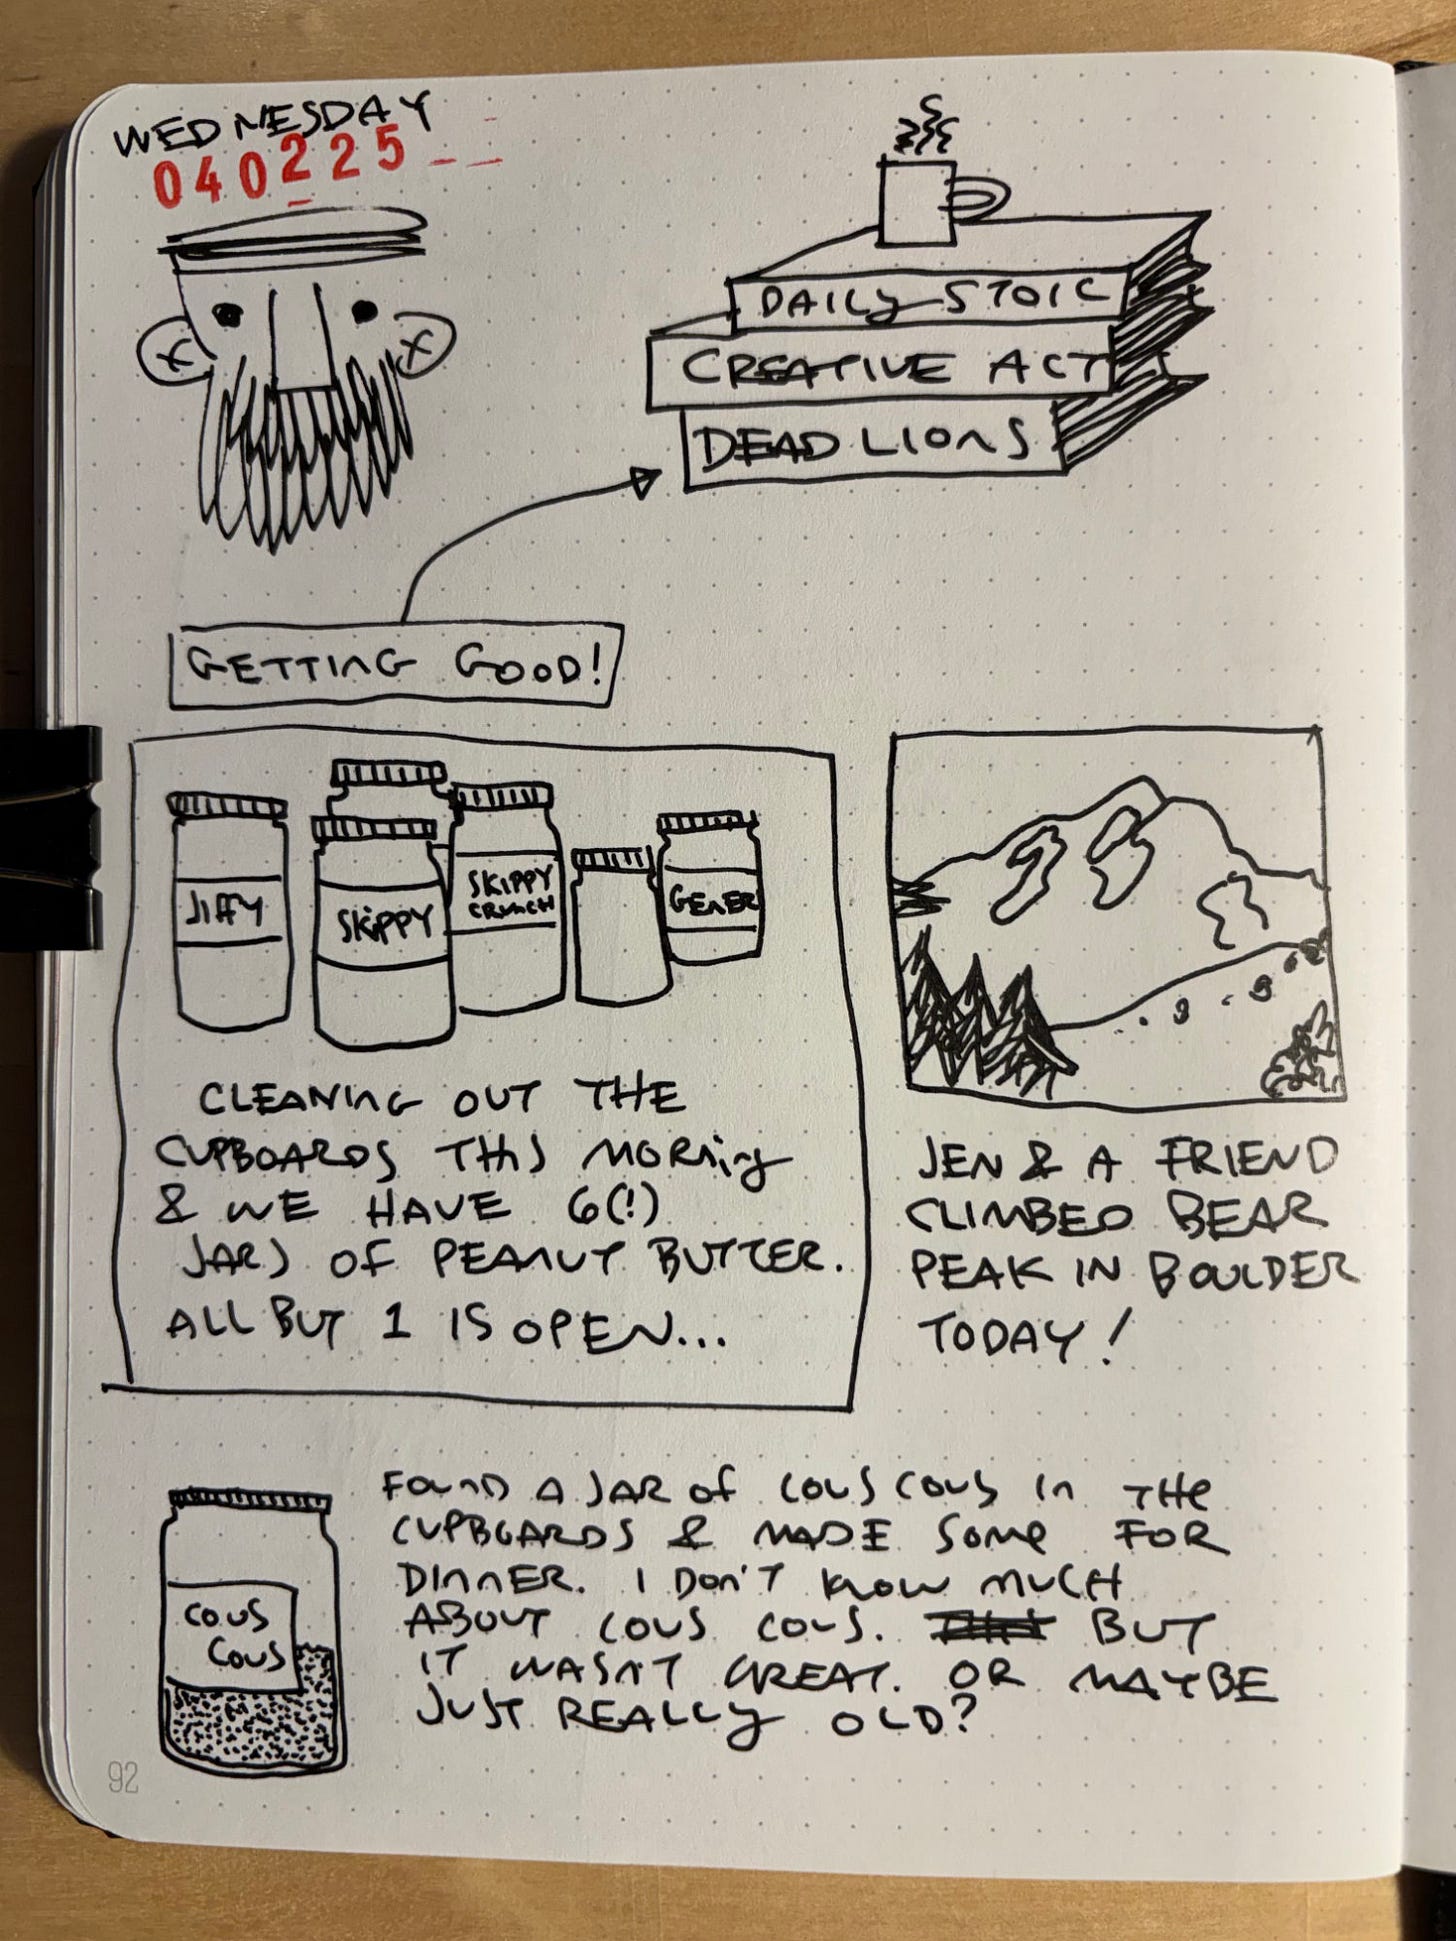 WEDNESDAY
040225
DAILY STOIC
CREATIVE ACT
DEAD LIONS
GETTING GOOD!
JIFFY
SKIPPY
SKIPPY
CRUNCH
GENER
CLEANING OUT THE
CUPBOARDS THIS MORNING
& WE HAVE 6(!)
JARS OF PEANUT BUTTER.
ALL BUT 1 IS OPEN...
JEN & A FRIEND
CLIMBED BEAR
PEAK IN BOULDER
TODAY!
COUS
COUS
FOUND A JAR OF COUS COUS IN THE
CUPBOARDS & MADE SOME FOR
DINNER. I DON'T KNOW MUCH
ABOUT COUS COUS. BUT
IT WASN'T GREAT. OR MAYBE
JUST REALLY OLD?
92